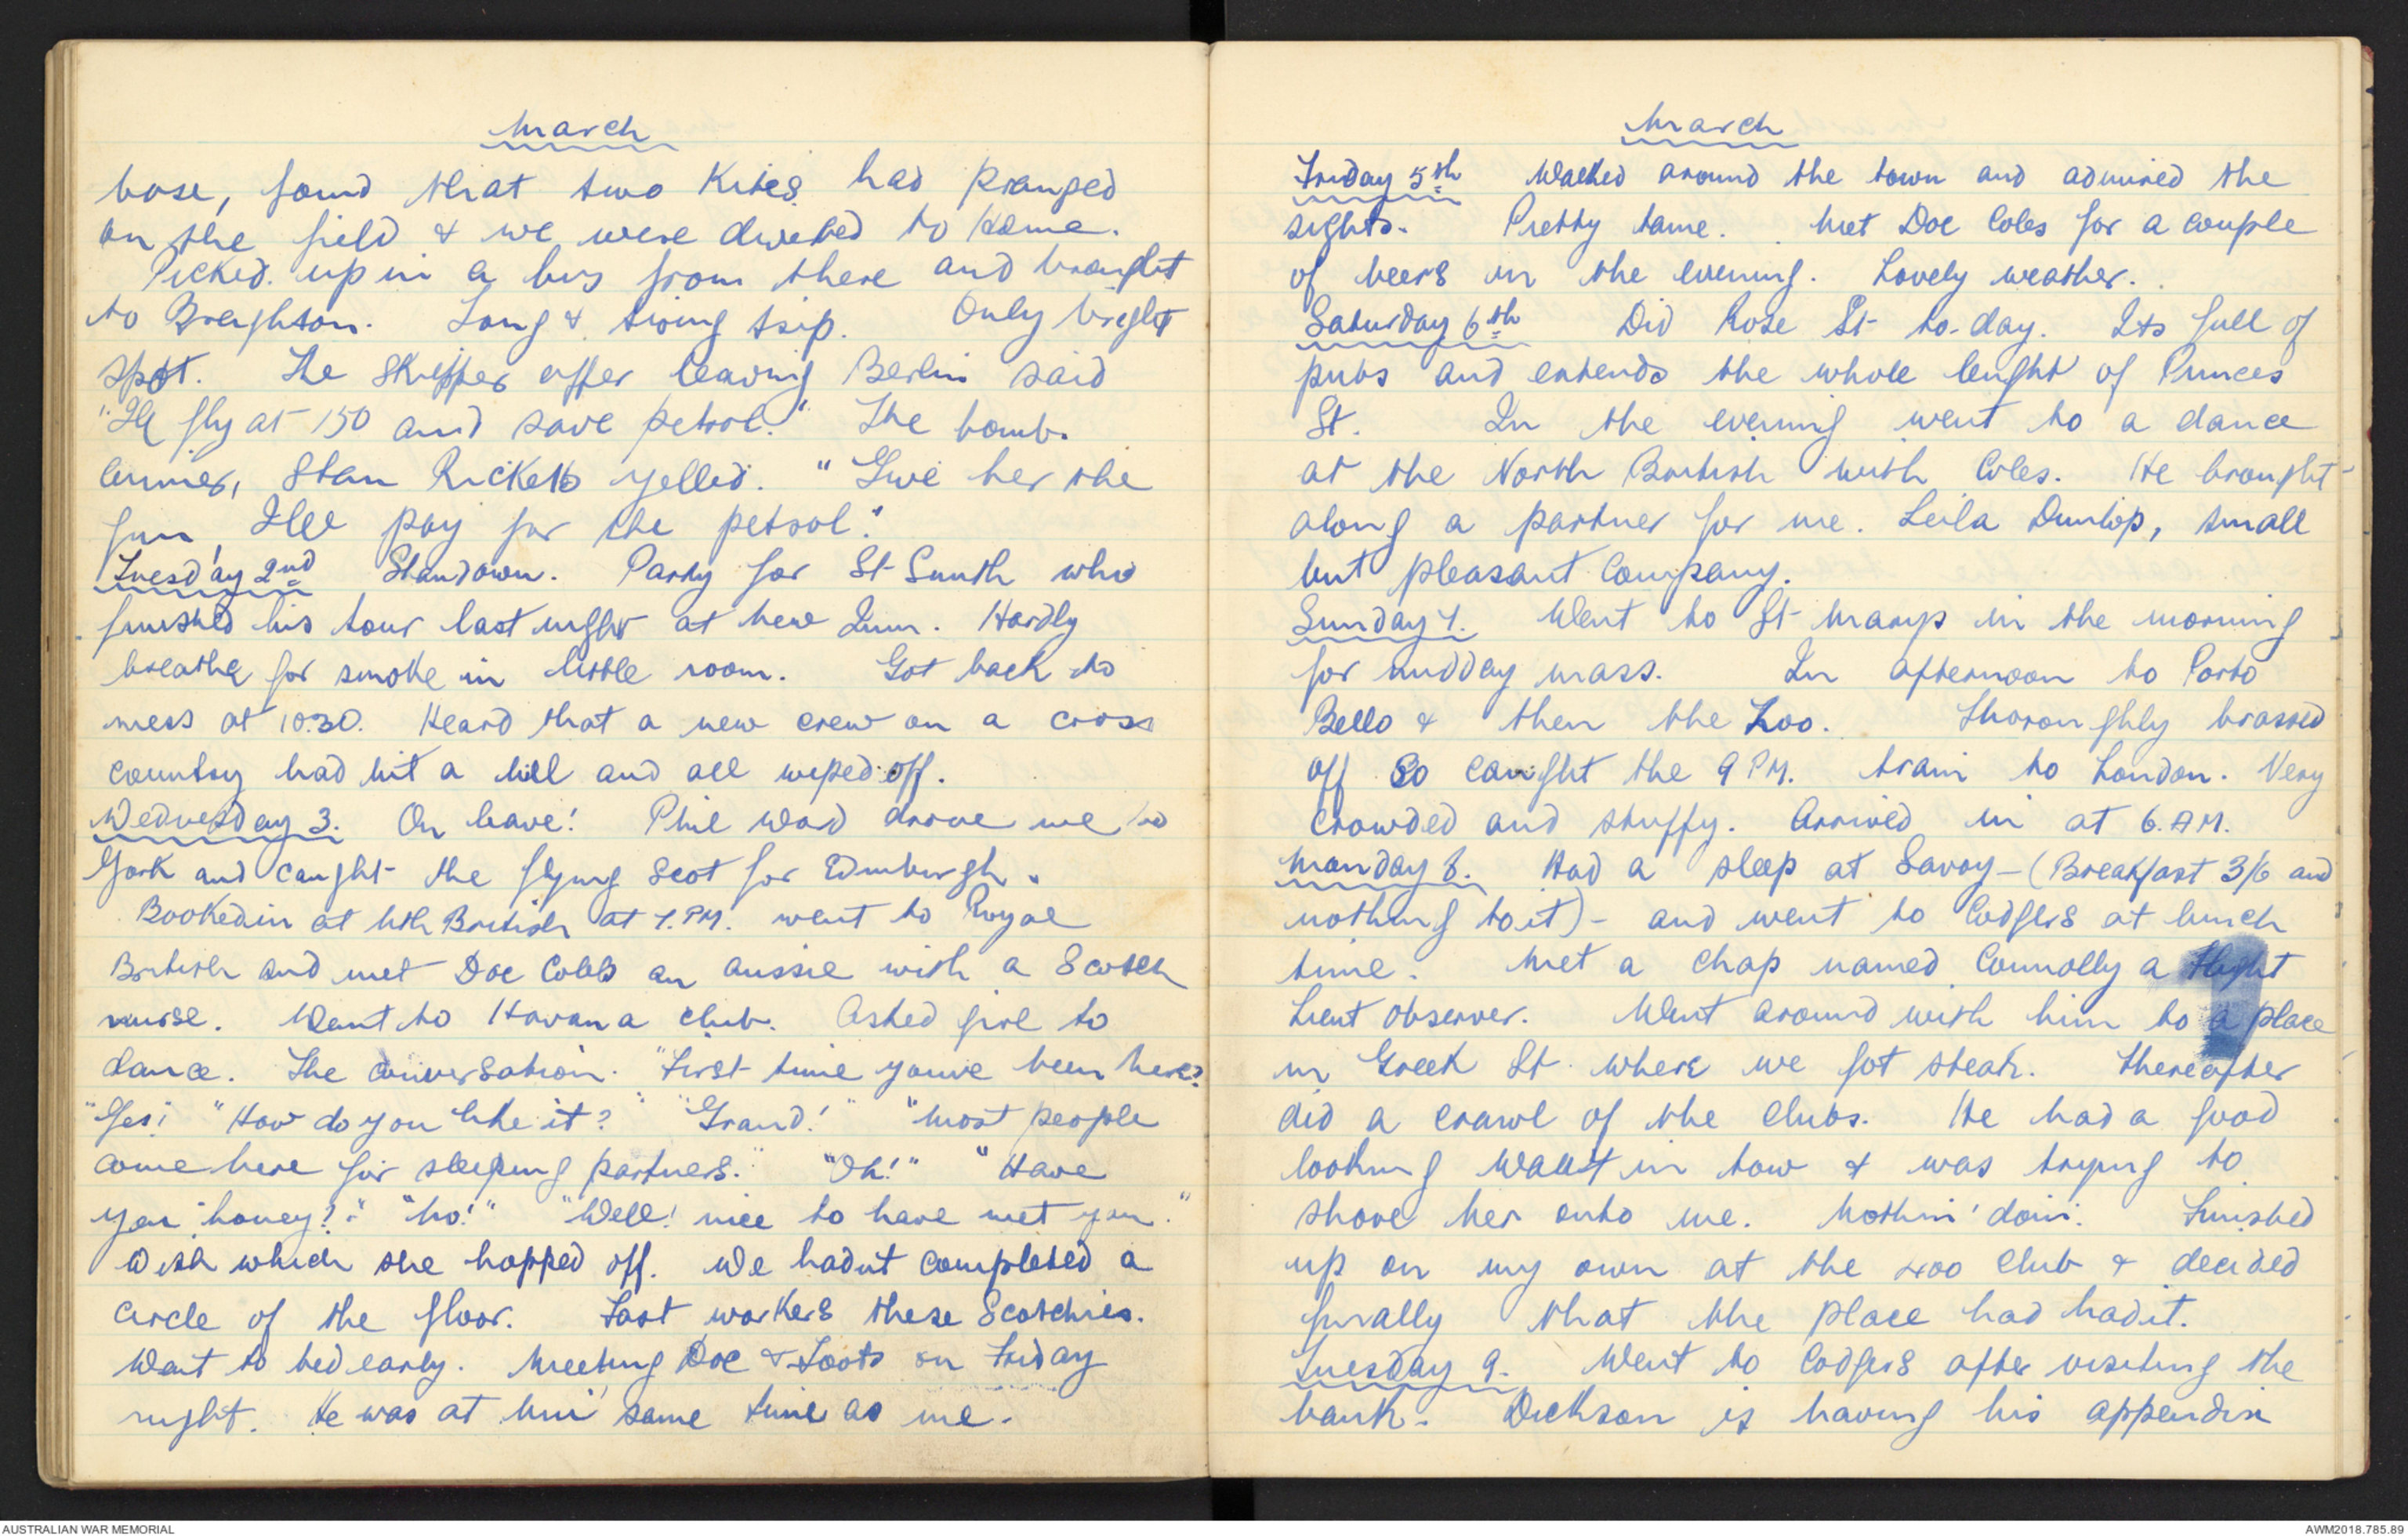 March
base, found that two Kites had pranged
on the field & we were diverted to Holme.
Picked up in a bus from there and brought
to Breighton. Long & tiring trip. Only bright
spot. The skipper after leaving Berlin said
"I'll fly at 150 and save petrol." The bomb
aimer, Stan Ricketts yelled. "Give her the
gun, I'll pay for the petrol."
Tuesday 2nd Standown. Party for St Smith who
finished his tour last night at New Inn. Hardly
breathe for smoke in little room. Got back to
mess at 10.30. Heard that a new crew on a cross
country had hit a hill and all wiped off.
Wednesday 3. On leave! Phil Ward drove me to
York and caught the flying Scot for Edinburgh.
Booked in at Nth British at 7.PM. went to Royal
British and met Doc Coles an aussie with a Scotch
nurse. Went to Havana club. Asked girl to
dance. The conversation. "First time youve been here?
"Yes! "How do you like it?" "Grand!" "Most people
come here for sleeping partners." "Oh!" "Have
you honey?" "No!" "Well! nice to have met you."
With which she hopped off. We hadnt completed a
circle of the floor. Fast workers these Scotchies.
Went to bed early. Meeting Doc & Toots on Friday
night. He was at Uni same time as me.
March
Friday 5th Walked around the town and admired the
sights. Pretty tame. Met Doc Coles for a couple
of beers in the evening. Lovely weather.
Saturday 6th Did Rose St to-day. Its full of
pubs and extends the whole lenght of Princes
St. In the evening went to a dance
at the North British with Coles. He brought
along a partner for me. Leila Dunlop, small
but pleasant company.
Sunday 7. Went to St Marys in the morning
for midday mass. In afternoon to Porto
Bello & then the Zoo. Thoroughly brassed
off so caught the 9 PM. train to London. Very
crowded and stuffy. Arrived in at 6.AM.
Monday 8. Had a sleep at Savoy - (Breakfast 3/6 and
nothing to it) - and went to Codgers at lunch
time. Met a chap named Connolly a Flight
Lieut observer. Went around with him to a place
in Greek St where we got steak. Thereafter
did a crawl of the clubs. He had a good
looking Waaf in tow & was trying to
shove her onto me. Nothin' doin. Finished
up on my own at the 400 Club & decided
finally that the place had had it.
Tuesday 9. Went to Codgers after visiting the
bank. Dickson is having his appendix
AUSTRALIAN WAR MEMORIAL
AWM2018.785.89